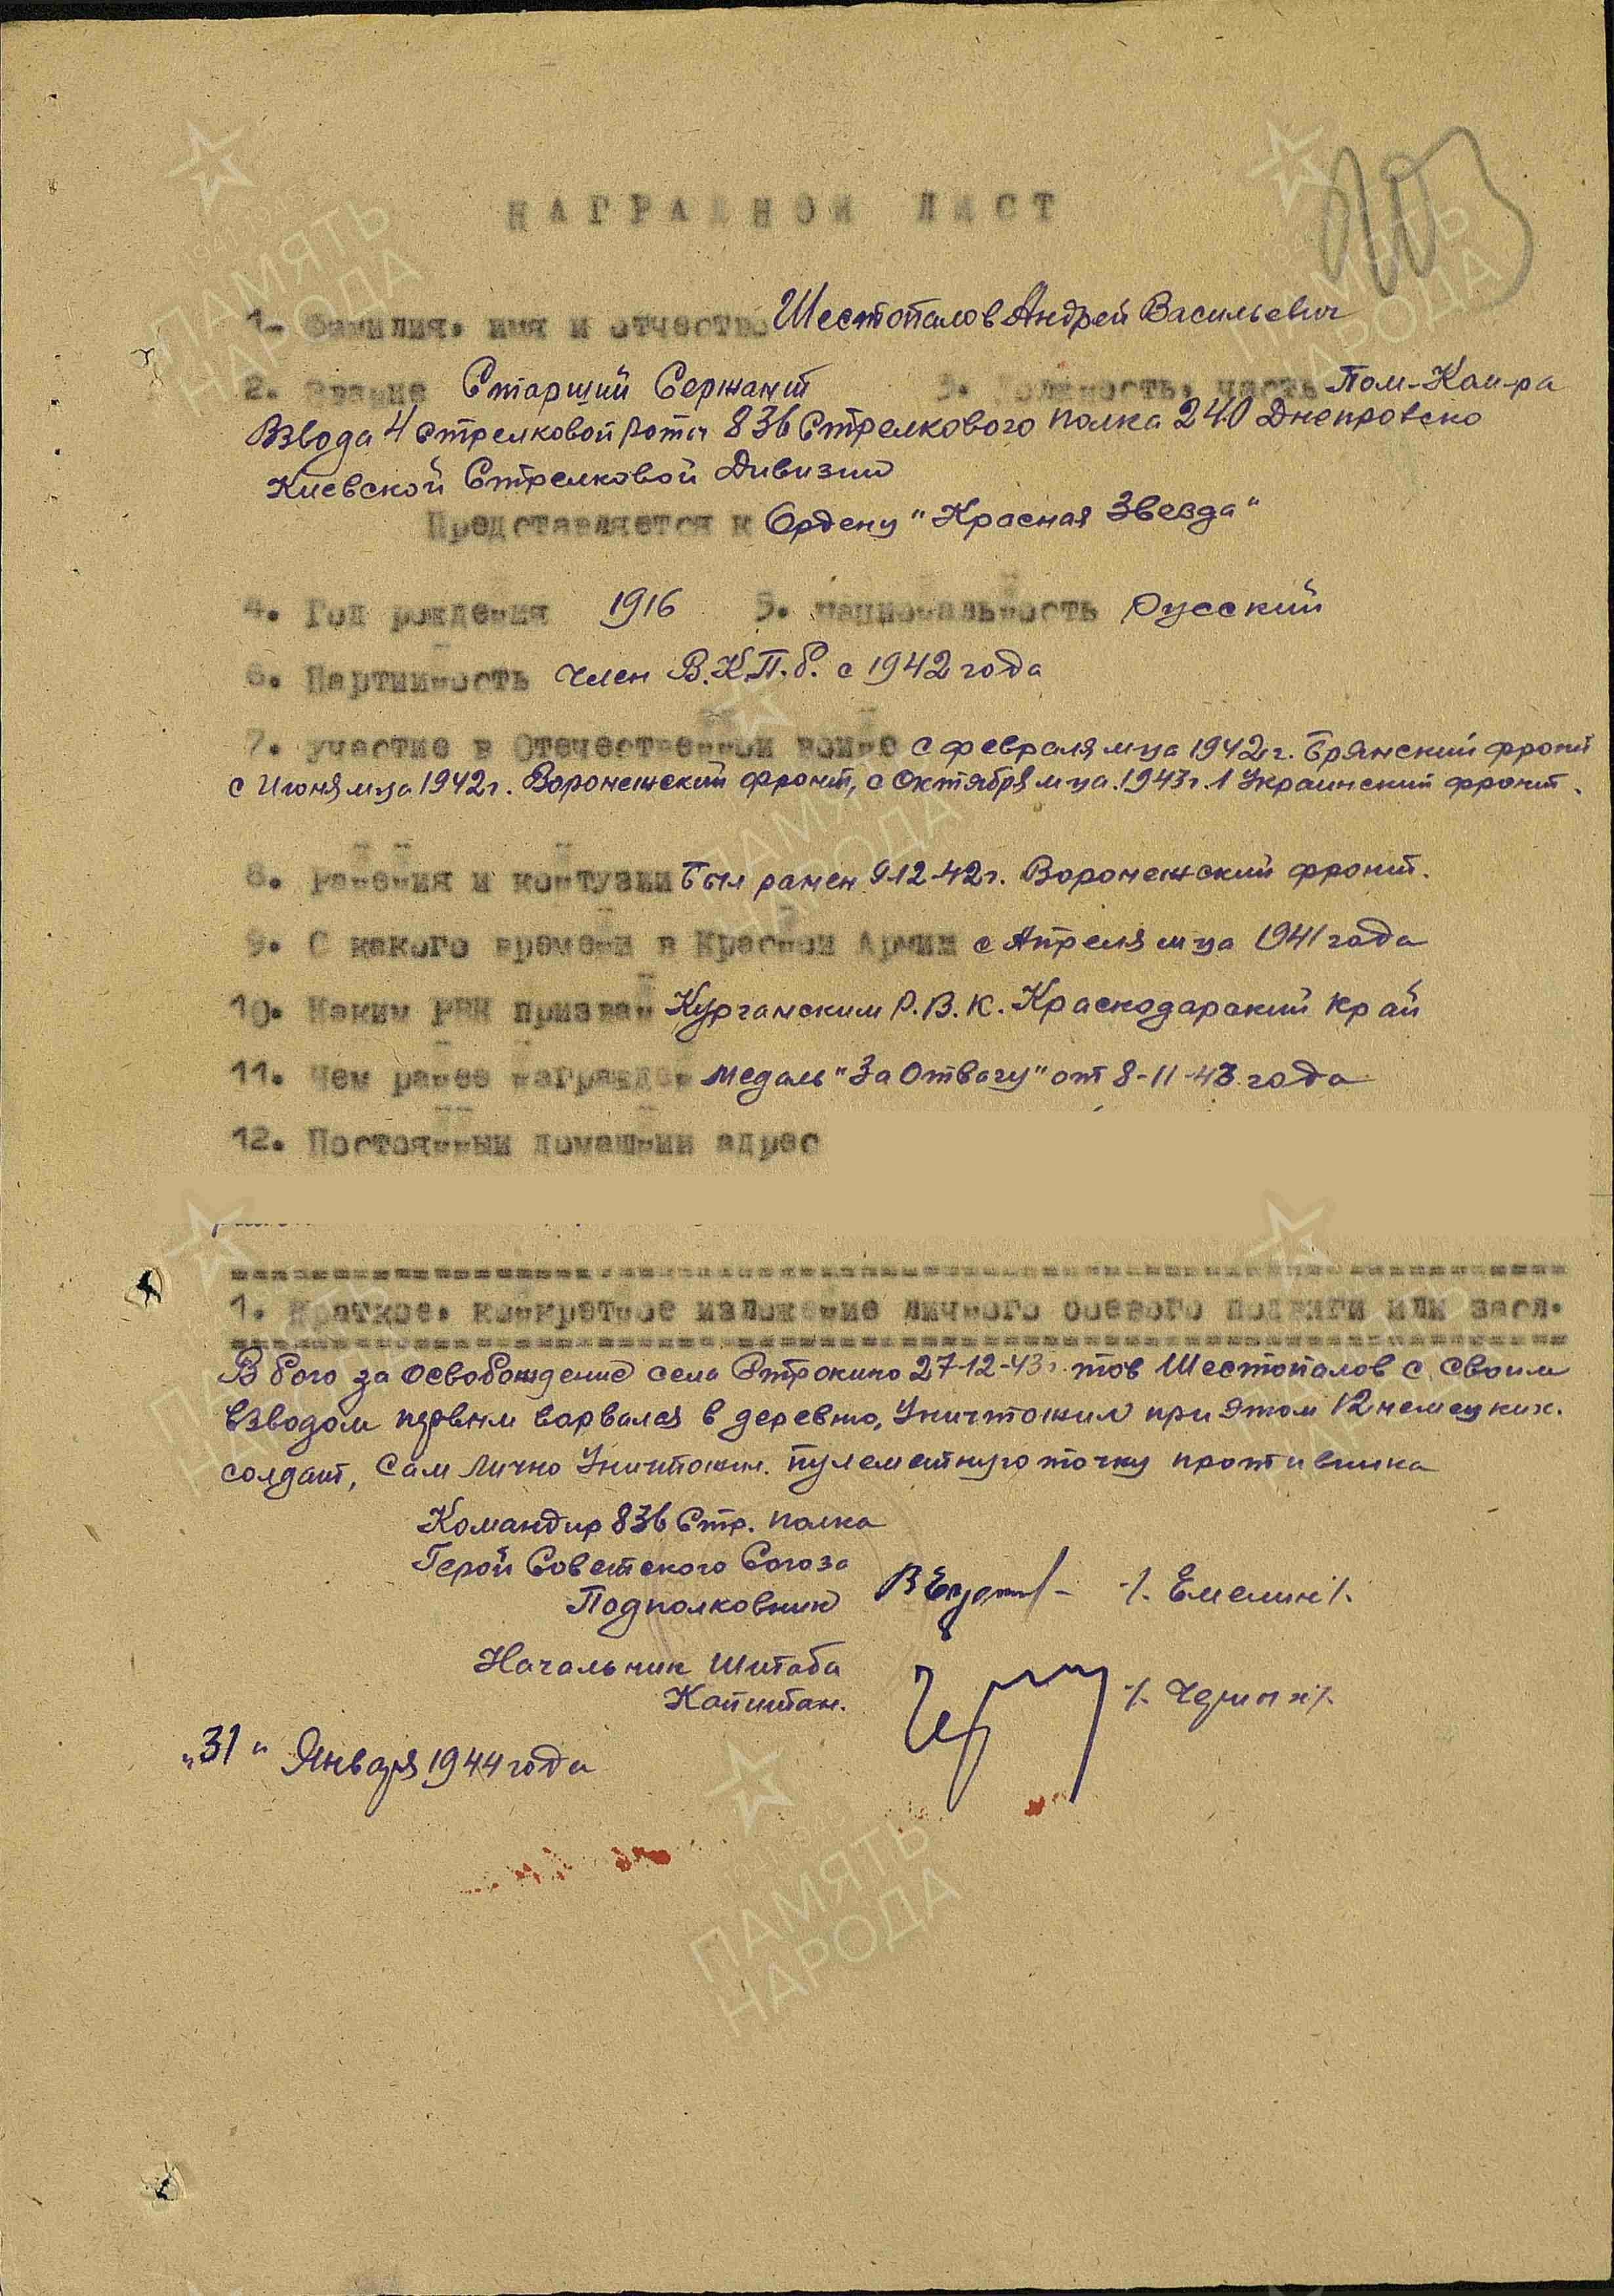 НАГРАДНОЙ ЛИСТ
1. Фамилия, имя и отчество Шестопалов Андрей Васильевич
2. Звание Старший Сержант 3. Должность, часть Пом-Ком-ра
Взвода 4 Стрелковой роты 836 Стрелкового полка 240 Днепровско
Киевской Стрелковой Дивизии
Представляется к Ордену "Красная Звезда"
4. Год рождения 1916 5. национальность Русский
6. Партийность Член В.К.П.б. с 1942 года
7. участие в Отечественной войне с февраля м-ца 1942г. Брянский фронт
с Июня м-ца 1942г. Воронежский фронт, с Октября м-ца. 1943г. 1 Украинский фронт.
8. Ранения и контузии Был ранен 9-12-42г. Воронежский фронт.
9. С какого времени в Красной Армии с Апреля м-ца 1941 года
10. Каким РВК призван Курганским Р.В.К. Краснодарский Край
11. Чем ранее награжден медаль "За Отвагу" от 8-11-43 года
12. Постоянный домашний адрес
1. Краткое, конкретное изложение личного боевого подвига или засл.
В бою за освобождение села 27-12-43г. тов Шестопалов с своим
взводом первым ворвался в деревню, Уничтожил при этом 12 немецких.
солдат, Сам Лично Уничтожил. пулеметную точку противника
Командир 836 Стр. полка
Герой Советского Союза
Подполковник /. Емелин/.
Начальник Штаба
Капитан.
"31" Января 1944 года
ПАМЯТЬ
НАРОДА